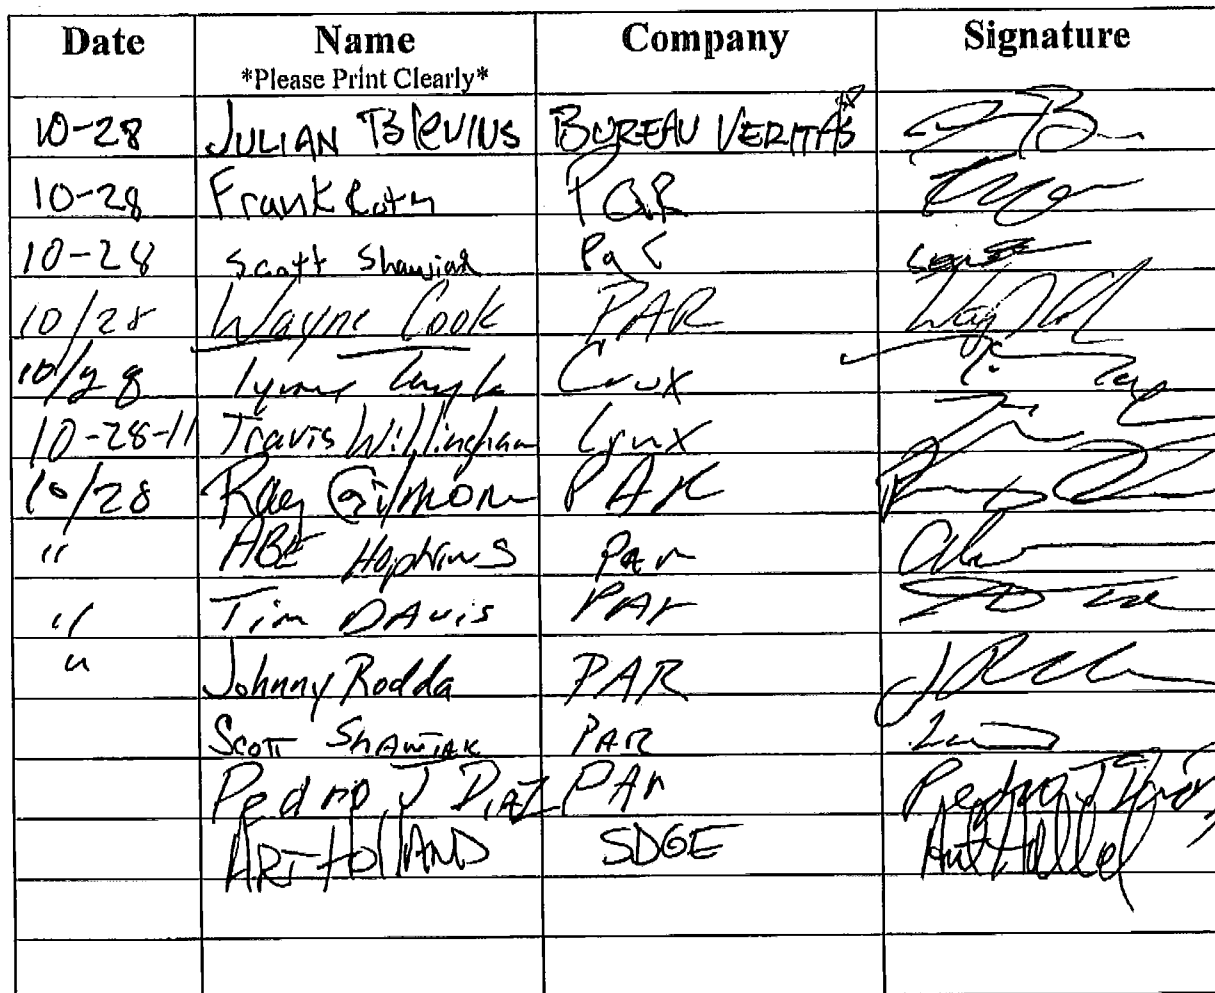 Date Name Company Signature
*Please Print Clearly*
10-28 JULIAN BlEVINS BUREAU VERITAS
10-28 Frank Roth PAR
10-28 Scott Shawiak Par
10/28 Wayne Cook PAR
10/28 Crux
10-28-11 Travis Willingham Lynx
10/28 Ray Gilmore PAR
" ABE HopkinS Par
" Tim DAvis PAr
" Johnny Rodda PAR
Scott ShAwiAk PAR
Pedro J DiAZ PAr Pedro J Diaz
ART HollAND SDGE Art Holland